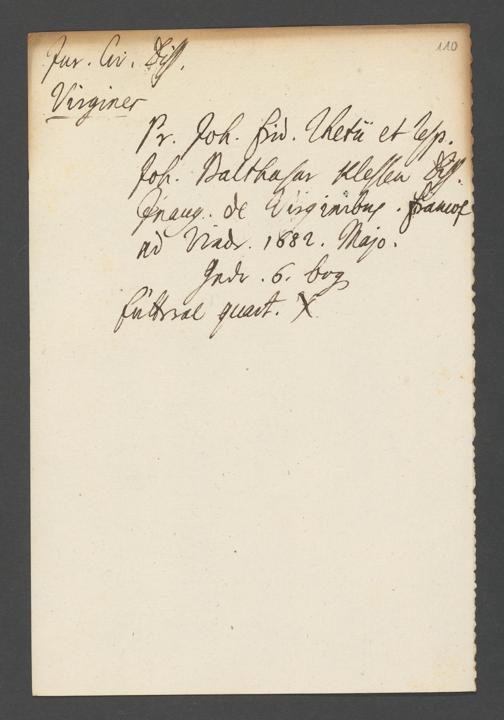 110
Jur. Civ. Diss.
Virgines
Pr. Joh. Frid. Rhetii et resp.
Joh. Balthasar Klessen Diss.
Inaug. de Virginibus. Francof
ad Viadr. 1682. Majo.
6. bog
Futteral quart. X